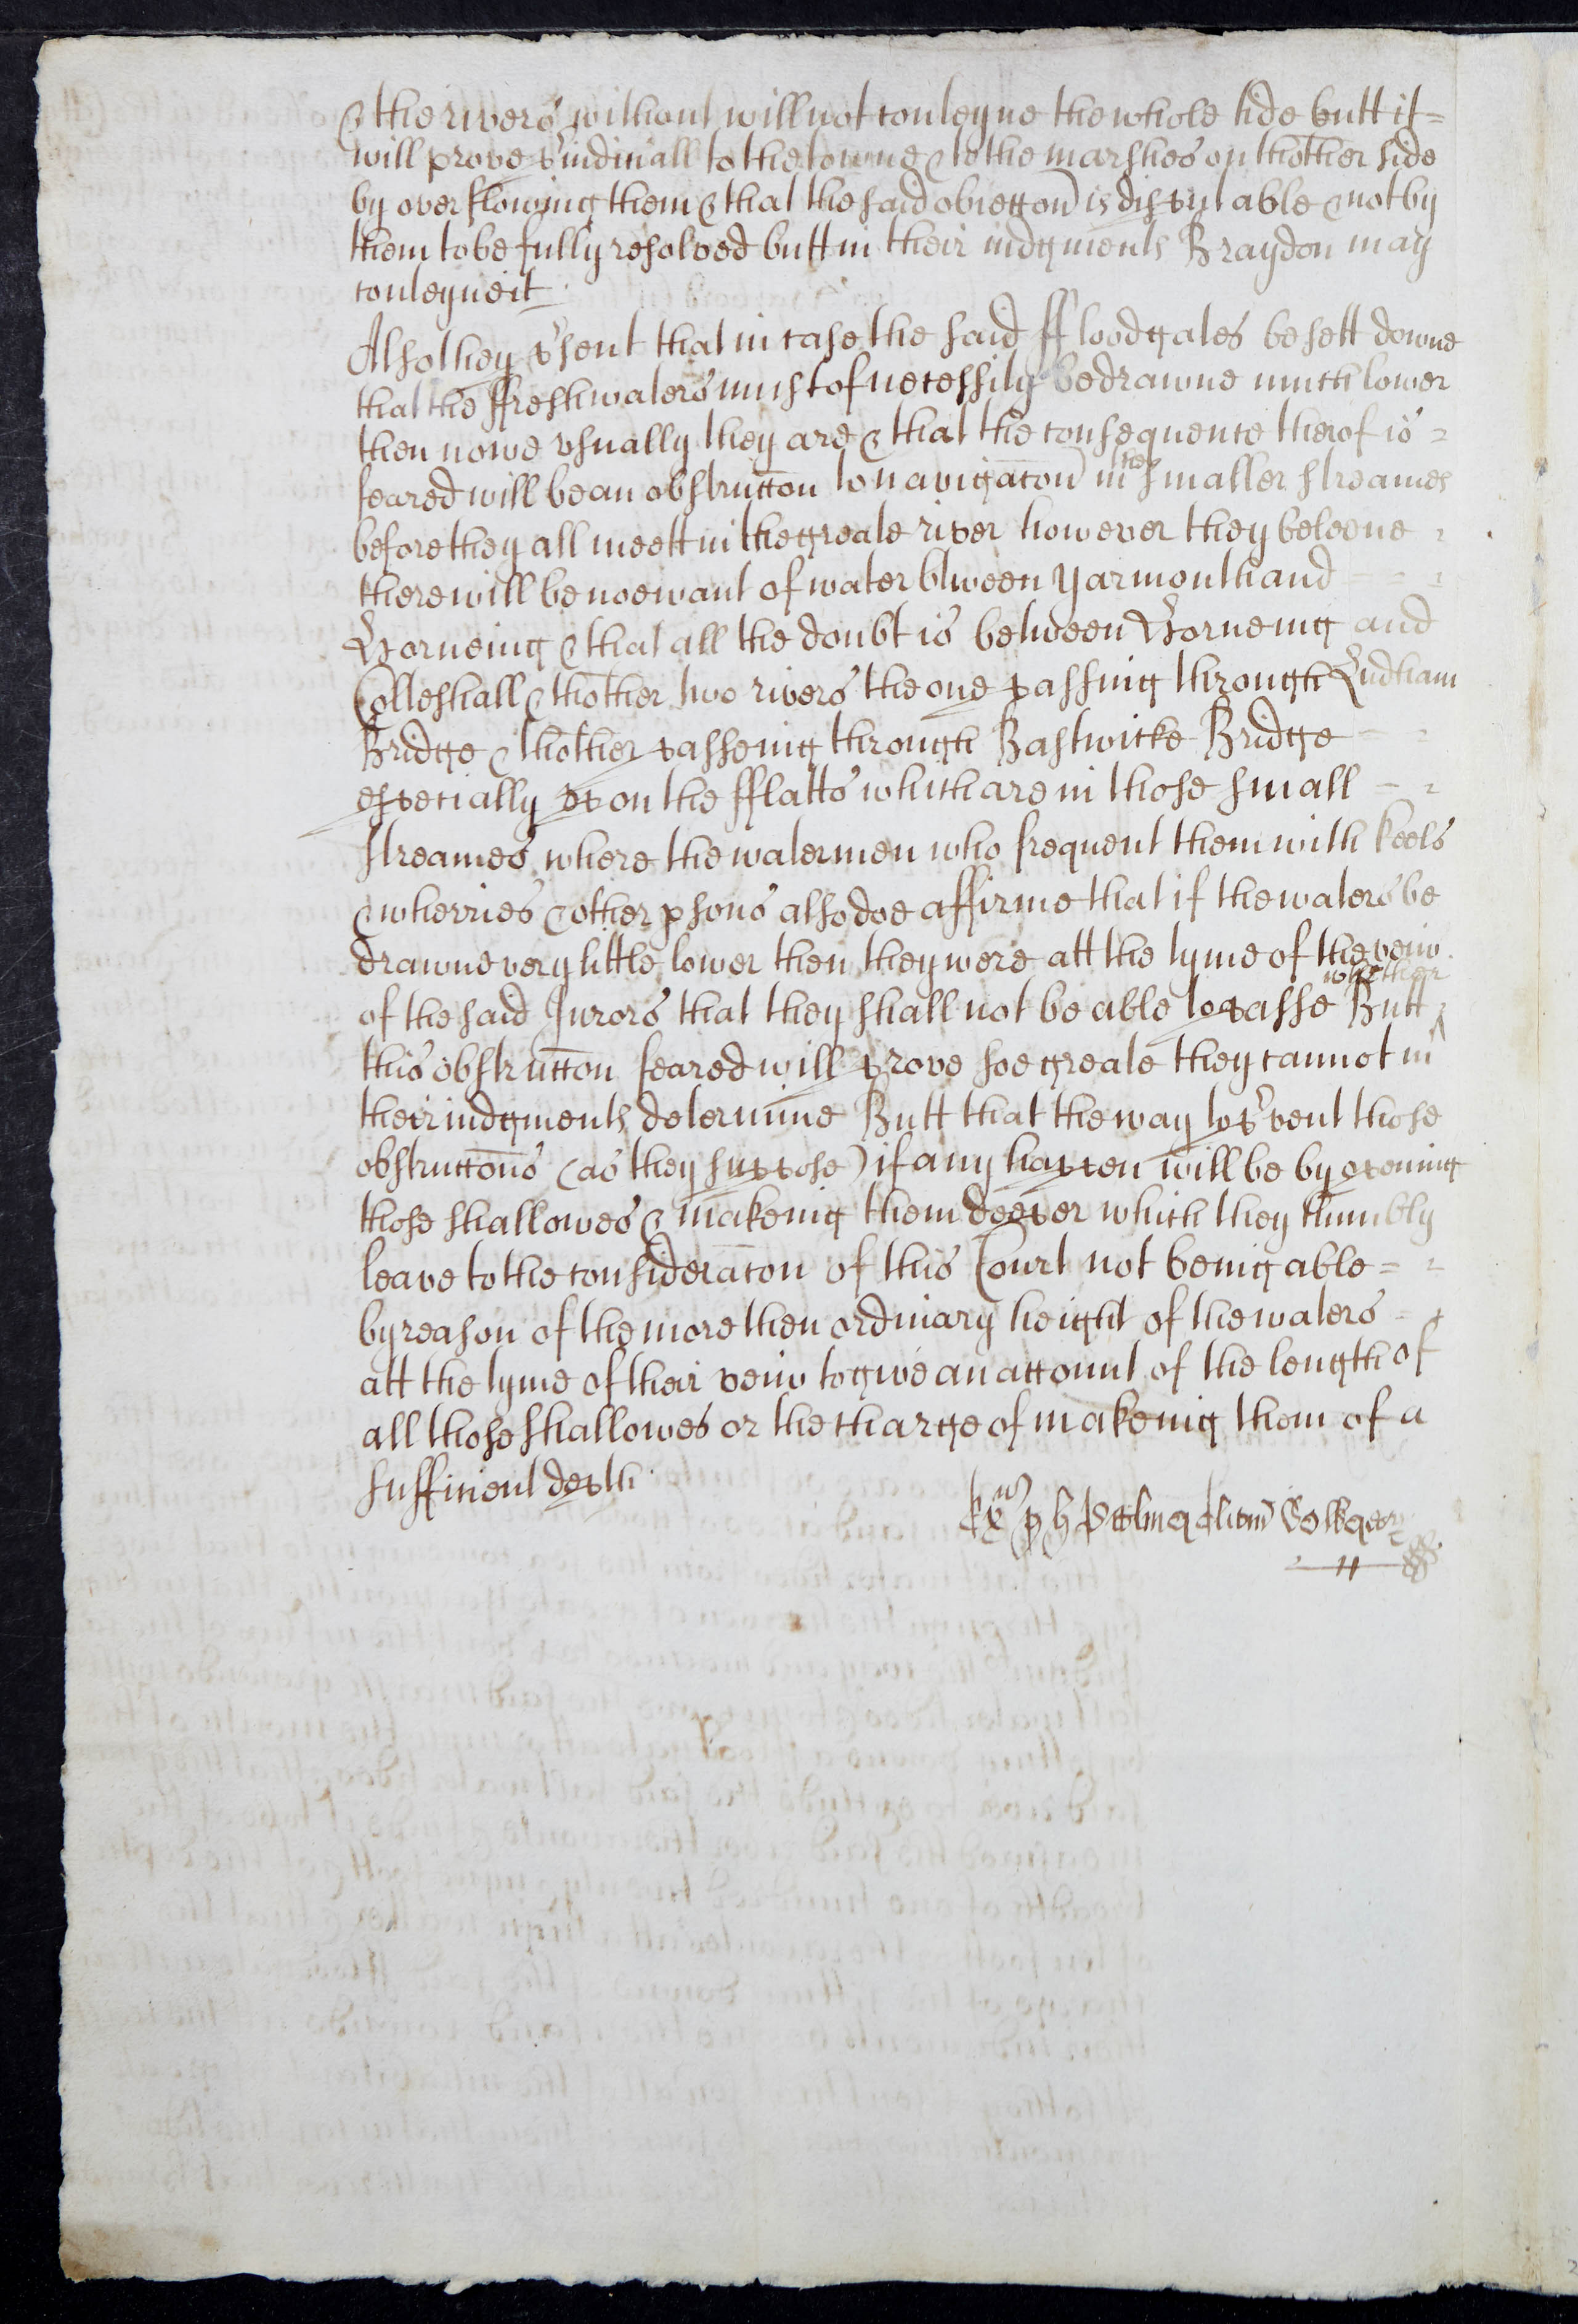 & the rivers without will not conteyne the whole tide butt it =
will prove p'iudiciall to the towne & to the marshes on thother side
by overflowing them & that the said obieccon is disputable & not by
them to be fully resolved butt in their iudgments Braydon may
conteyne it.
Also they p'sent that in case the said ffloodgates be sett downe
that the ffresh waters must of necessity be drawne much lower
then nowe vsually they are & that the consequence therof is =
feared will be an obstruccon to navigacon in the smaller streames
before they all meett in the greate river however they beleeve =
there will be noe want of water btween Yarmouth and
Horneing & that all the doubt is between Horneing and
Colleshall & thother two rivers the one passing through Ludham
Bridge & thother passeing through Bastwicke Bridge
especially vpon the fflatts which are in those small
streames where the watermen who frequent them with keels
& wherries & other psons also doe affirme that if the waters be
drawne very little lower then they were att the tyme of the veiw
of the said Jurors that they shall not be able to passe Butt whether
this obstruccon feared will prove soe greate they cannot in
their iudgments determine Butt that the way to p'vent those
obstruccons (as they suppose) if any happen will be by opening
those shallowes & makeing them deeper which they humbly
leave to the consideracon of this Court not being able =
by reason of the more then ordinary height of the waters
att the tyme of their veiw to give an account of the length of
all those shallowes or the charge of makeing them of a
sufficient depth.